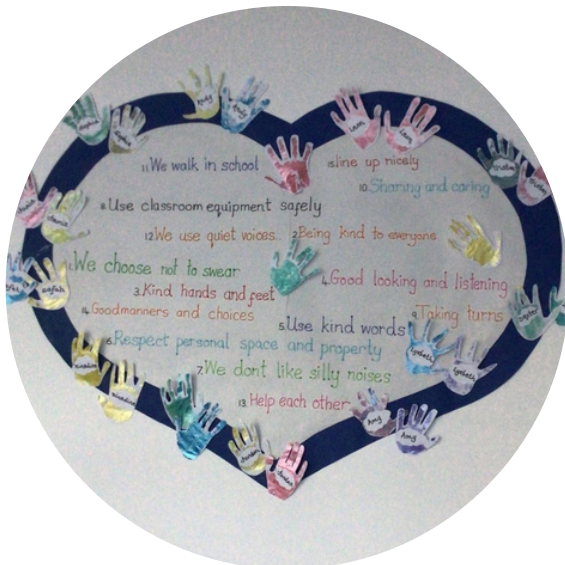 Andy
Andy
Lena
Lena
Sophia
Sophia
11. We walk in school
15. line up nicely
10. Sharing and caring
8. Use classroom equipment safely
12. We use quiet voices..
2. Being kind to everyone
1. We choose not to swear
4. Good looking and listening
3. Kind hands and feet
14. Goodmanners and choices
9. Taking turns
5. Use kind words
6. Respect personal space and property
7. We dont like silly noises
13. Help each other
Amy
Amy